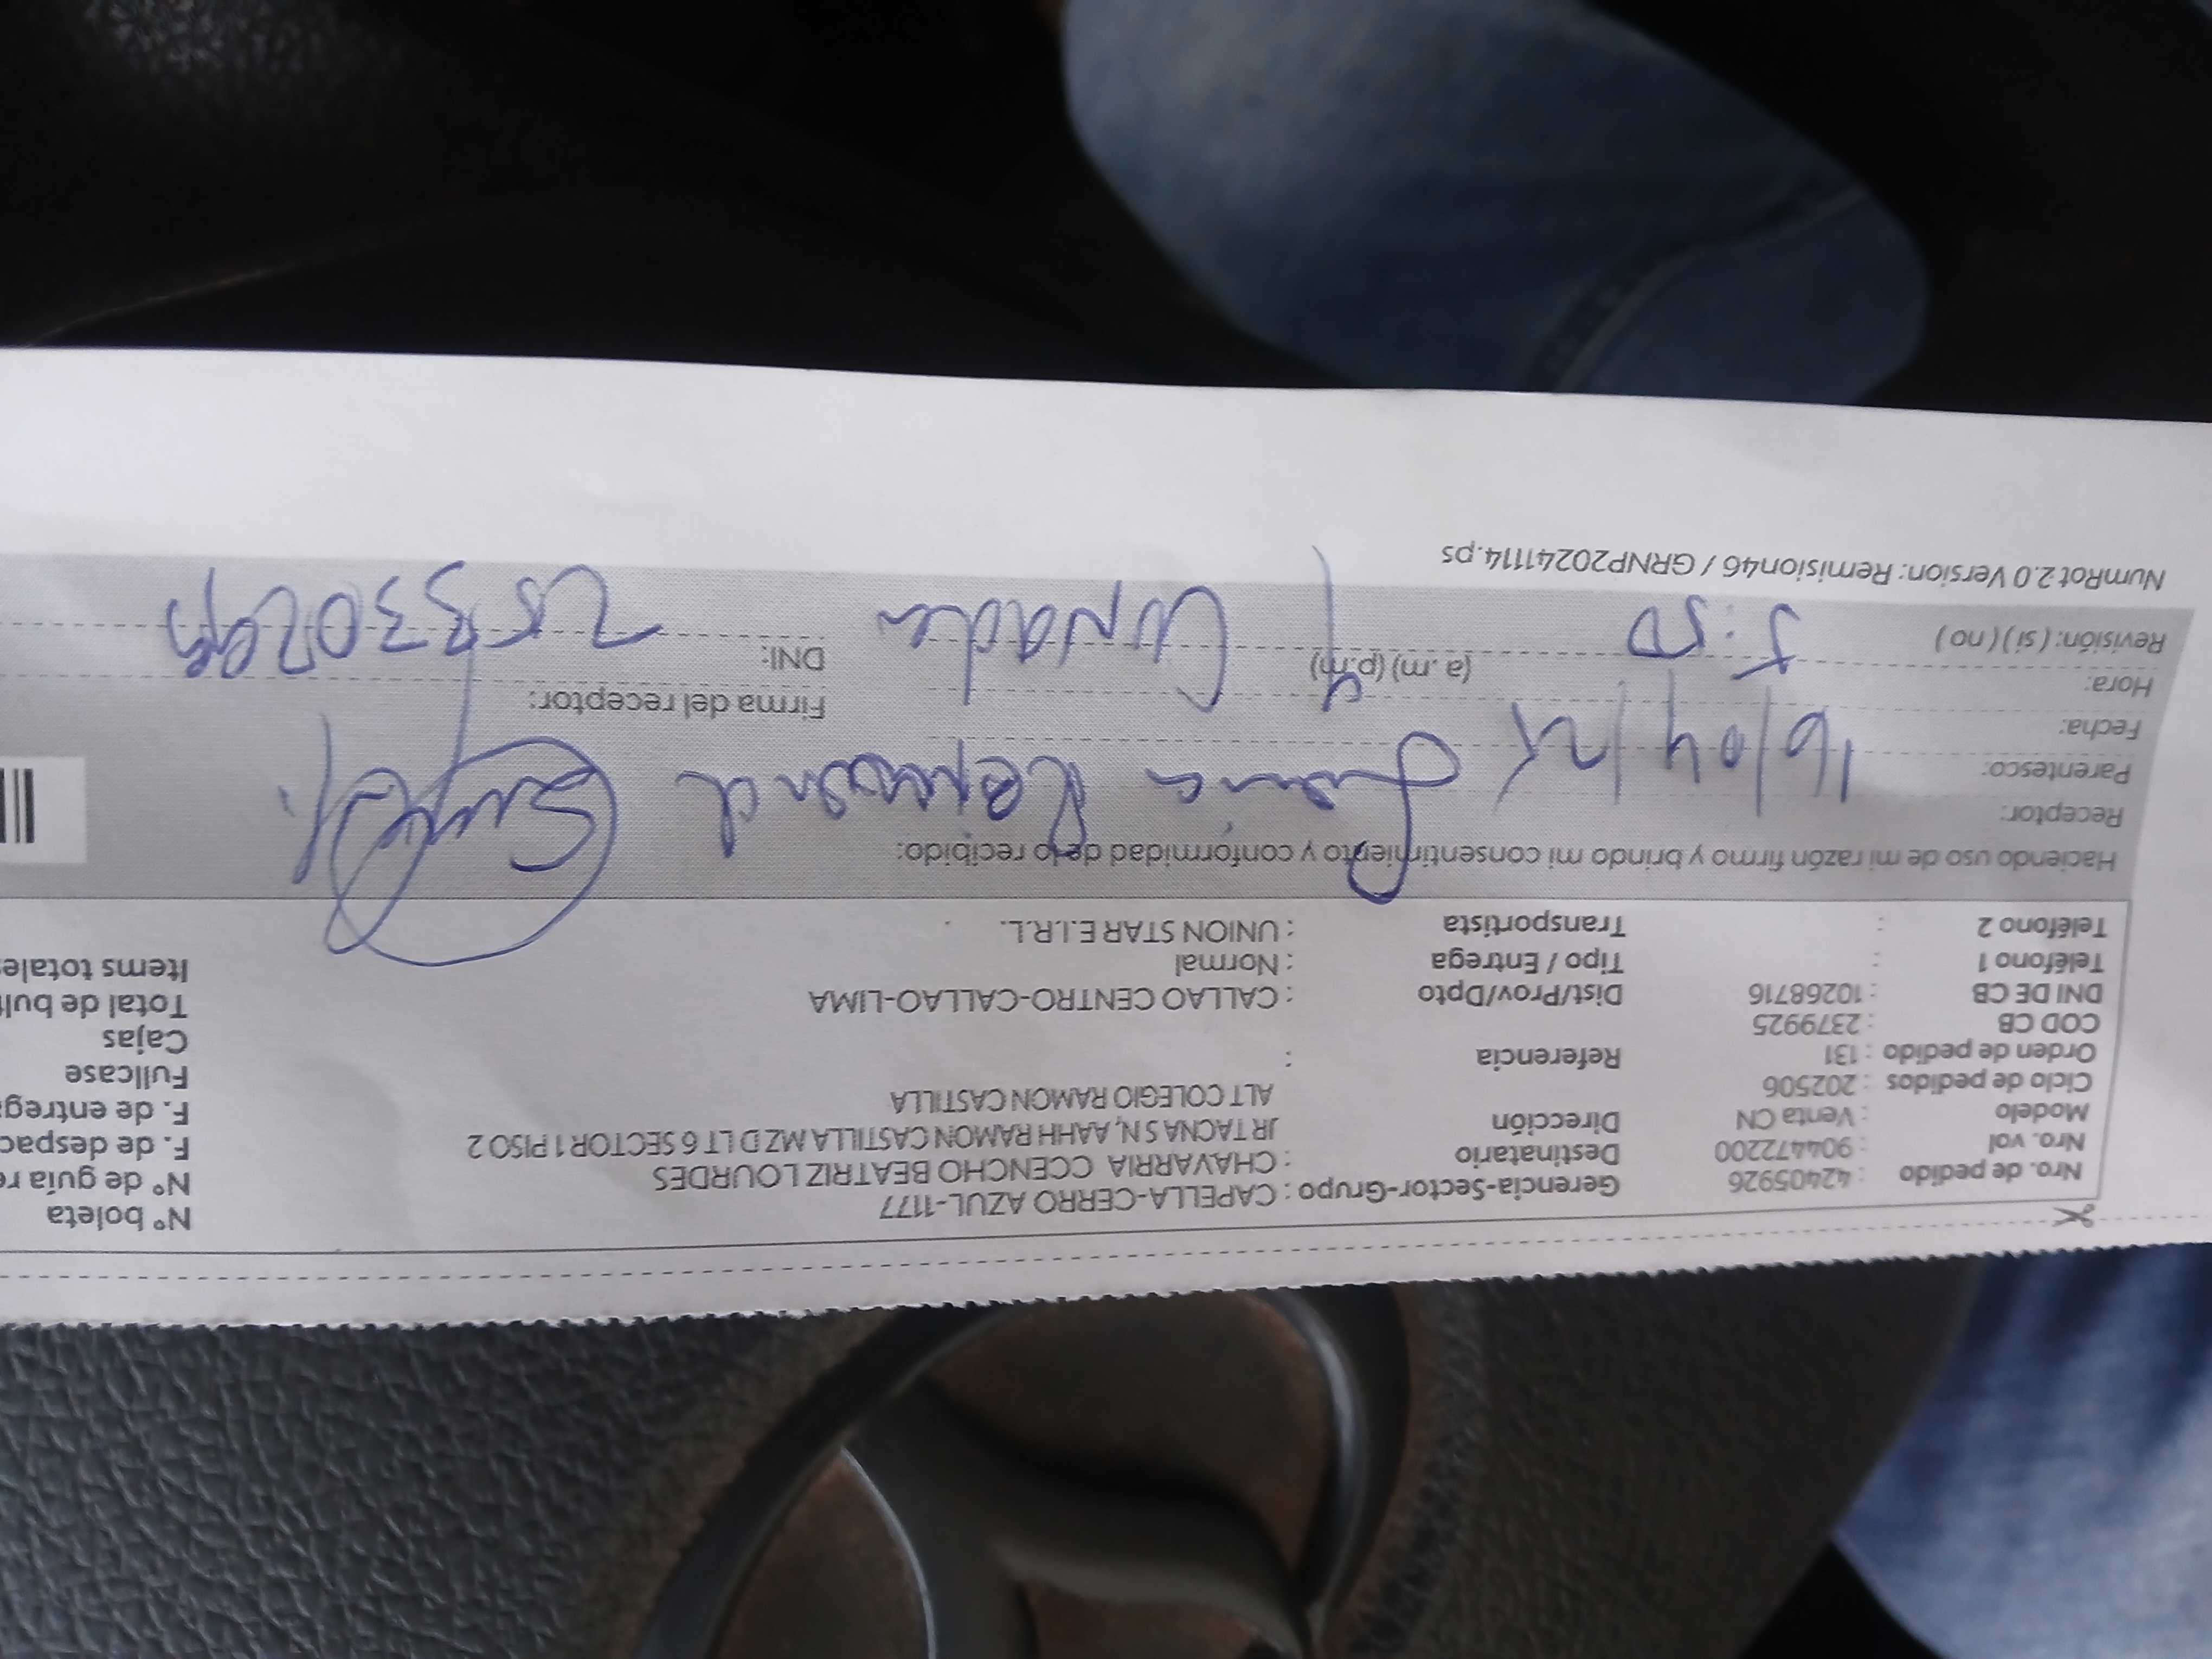 Nº boleta
Nro. de pedido : 42405926 Gerencia-Sector-Grupo : CAPELLA-CERRO AZUL-1177 Nº de guía re
Nro. vol : 904472200 Destinatario : CHAVARRIA CCENCHO BEATRIZ LOURDES F. de despac
Modelo : Venta CN Dirección JR TACNA S N, AAHH RAMON CASTILLA MZ D LT 6 SECTOR 1 PISO 2 F. de entrega
Ciclo de pedidos : 202506 ALT COLEGIO RAMON CASTILLA Fullcase
Orden de pedido : 131 Referencia : Cajas
COD CB : 2379925
DNI DE CB : 10268716 Dist/Prov/Dpto : CALLAO CENTRO-CALLAO-LIMA Total de bult
Teléfono 1 : Tipo / Entrega : Normal Items totale
Teléfono 2 : Transportista : UNION STAR E.I.R.L.
Haciendo uso de mi razón firmo y brindo mi consentimiento y conformidad de lo recibido:
Receptor:
Parentesco:
Fecha: 16/04/25 Firma del receptor:
Hora: 5:50 (a. m) (p.m) Cuñada DNI:
Revisión: ( si ) ( no )
NumRot 2.0 Version: Remision46 / GRNP20241114.ps